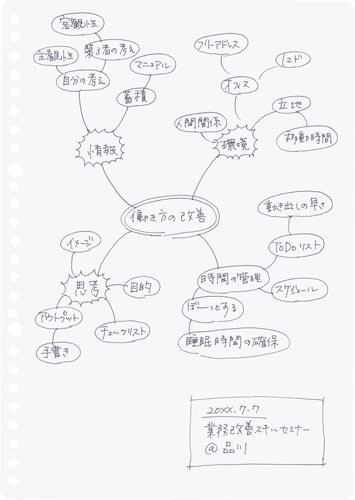 客観性
第3者の考え
主観性
自分の考え
マニュアル
蓄積
情報
フリーアドレス
オフィス
人間関係
環境
立地
移動時間
働き方の改善
動き出しの早さ
ToDoリスト
時間の管理
スケジュール
ぼーっとする
睡眠時間の確保
イメージ
思考
目的
アウトプット
チェックリスト
手書き
20XX.7.7
業務改善スキルセミナー
@品川